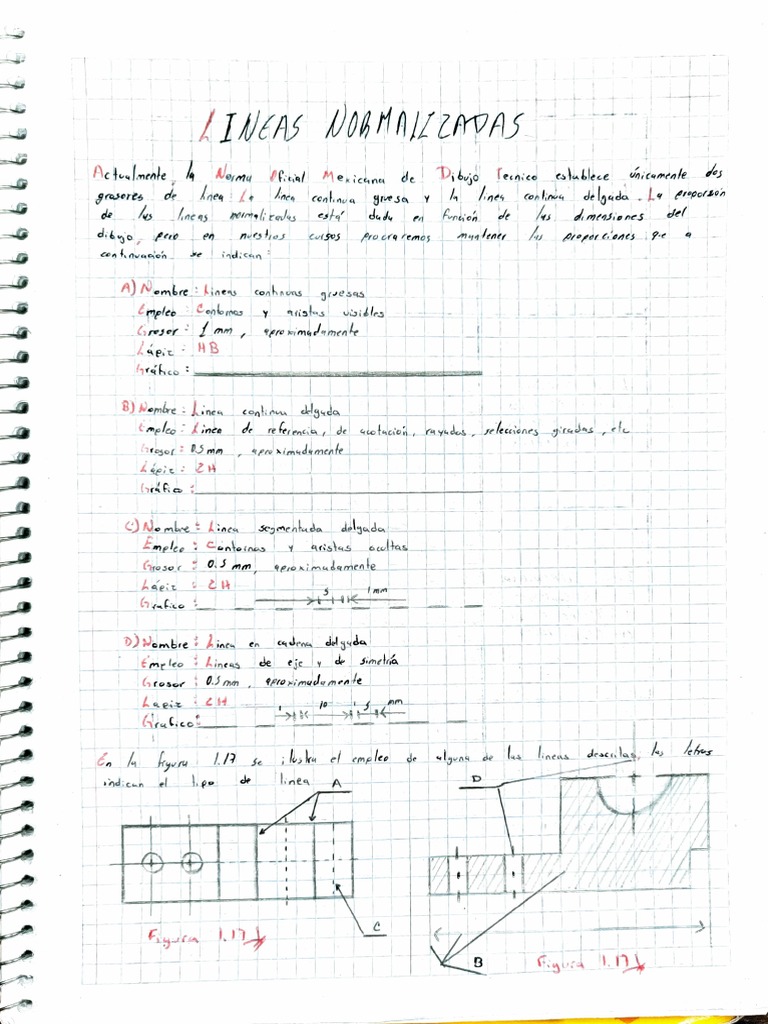 LINEAS NORMALIZADAS
Actualmente, la Norma Oficial Mexicana de Dibujo Tecnico establece únicamente dos
grosores de linea: La linea continua gruesa y la linea continua delgada. La proporsión
de las lineas normalizadas está dada en función de las dimensiones del
dibujo, pero en nuestros cursos procuraremos mantener las proporciones que a
continuación se indican:
A) Nombre: Lineas continuas gruesas
Empleo: Contornos y aristas visibles
Grosor: 1 mm, aproximadamente
Lápiz: HB
Gráfico:
B) Nombre: Linea continua delgada
Empleo: Linea de referencia, de acotación, rayados, selecciones giradas, etc
Grosor: 0.5 mm, aproximadamente
Lápiz: 2H
Gráfico:
C) Nombre: Linea segmentada delgada
Empleo: Contornos y aristas ocultas
Grosor: 0.5 mm, aproximadamente
Lápiz: 2H
5 1mm
Grafico:
D) Nombre: Linea en cadena delgada
Empleo: Lineas de eje y de simetría
Grosor: 0.5 mm, aproximadamente
Lapiz: 2H
1 10 1 5 mm
Grafico:
En la figura 1.17 se ilustra el empleo de alguna de las lineas descritas, las letras
indican el tipo de linea
A
D
C
B
Figura 1.17
Figura 1.17